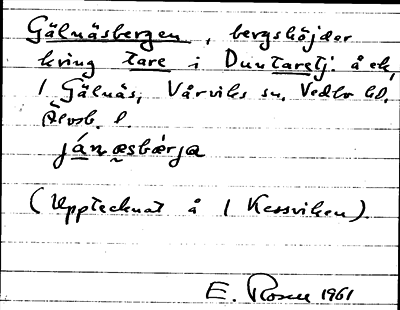 Gälnäsbergen, bergshöjder
kring tare i Duntaretj. å ek,
1 Gälnäs, Vårviks sn. Vedbo hd.
Älvsb. l.
jánæsbærja
(Upptecknat å 1 Kessviken)
E. Rosell 1961